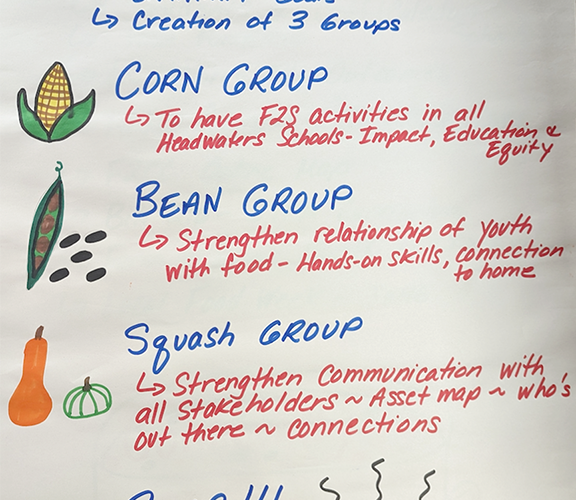 ↳ Creation of 3 Groups
CORN GROUP
↳ To have F2S activities in all
Headwaters Schools - Impact, Education &
Equity
BEAN GROUP
↳ Strengthen relationship of youth
with food - Hands-on skills, connection
to home
Squash GROUP
↳ Strengthen Communication with
all Stakeholders ~ Asset map ~ who's
out there ~ connections